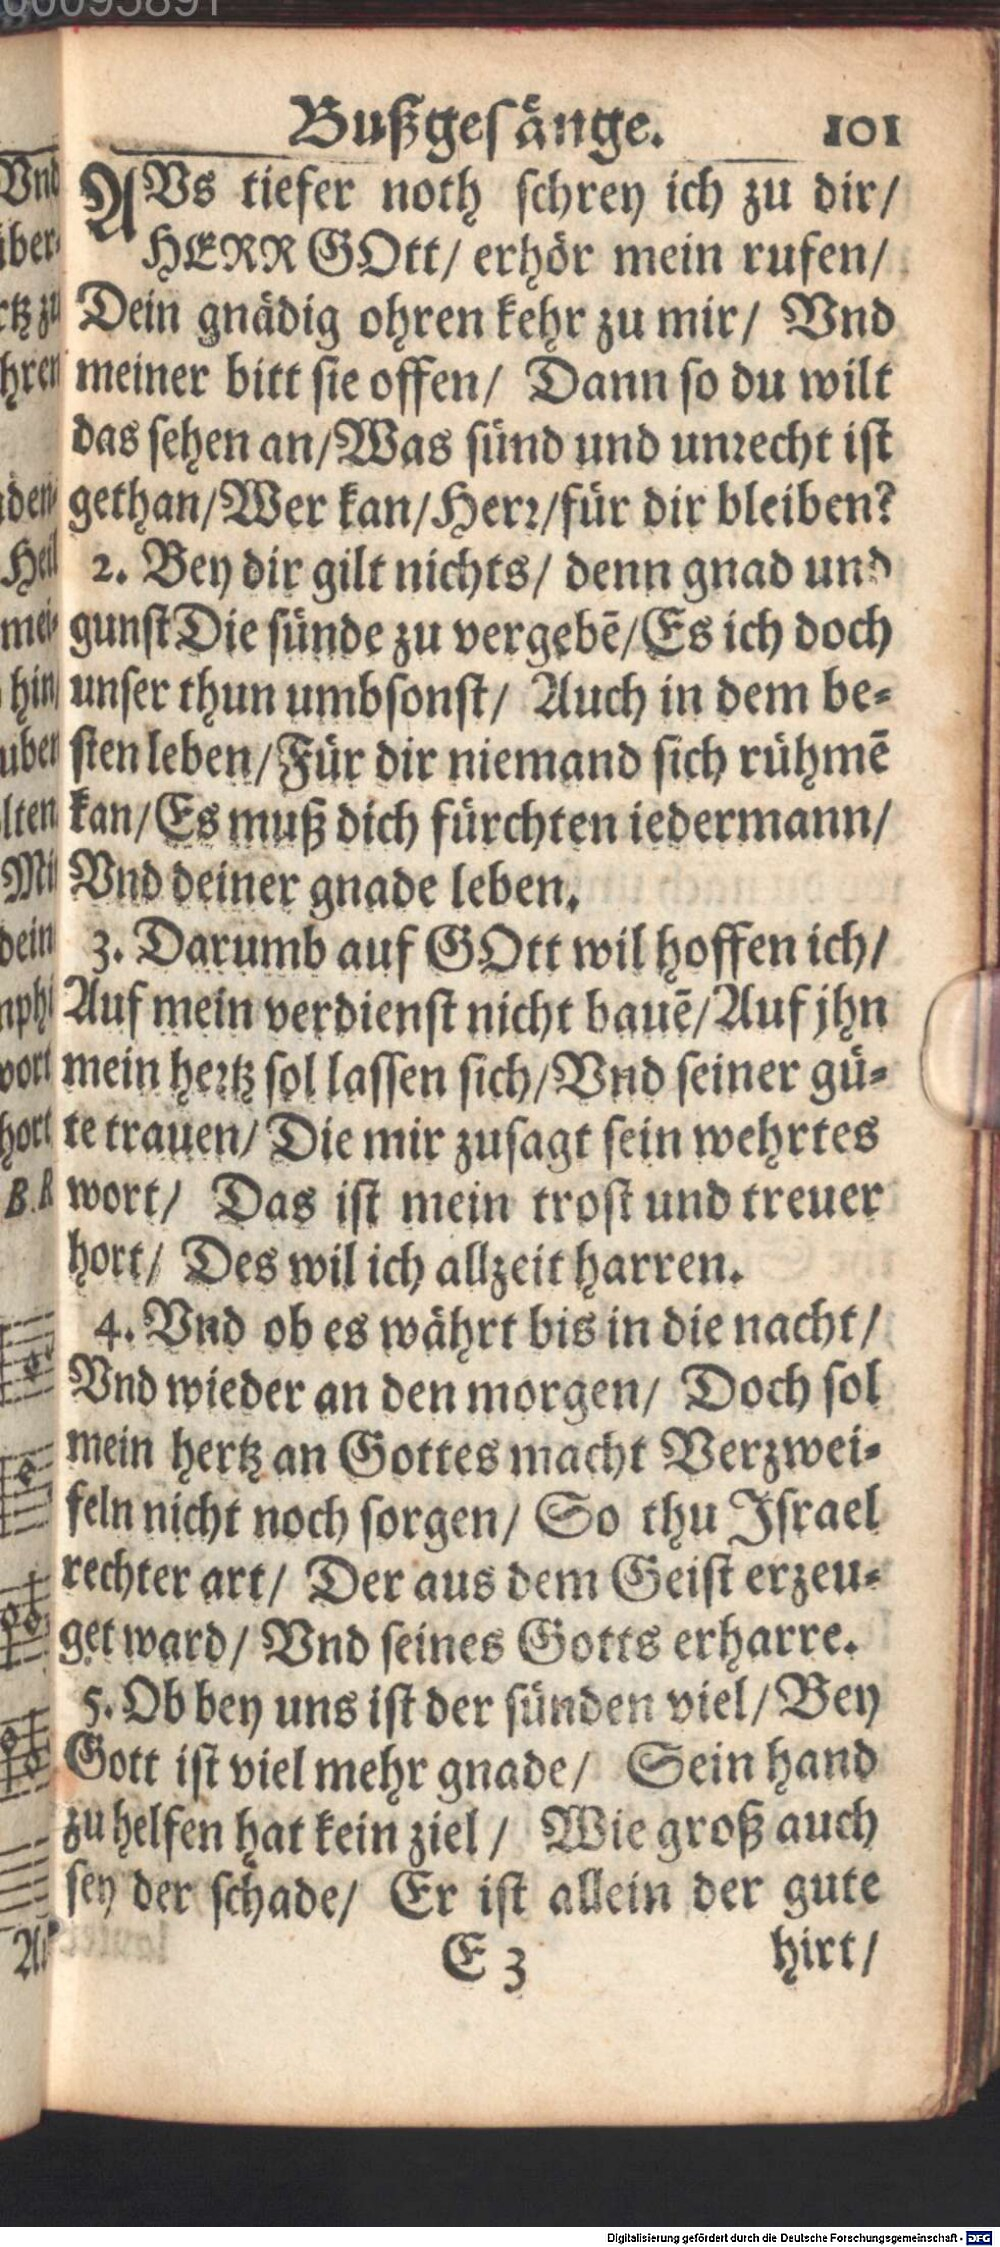 Bußgesänge. 101
AVs tiefer noth schrey ich zu dir/
HERR GOtt/ erhör mein rufen/
Dein gnädig ohren kehr zu mir/ Vnd
meiner bitt sie offen/ Dann so du wilt
das sehen an/Was sünd und unrecht ist
gethan/Wer kan/Herr/für dir bleiben?
2. Bey dir gilt nichts/ denn gnad und
gunst Die sünde zu vergebē/Es ich doch
unser thun umbsonst/ Auch in dem be-
sten leben/Für dir niemand sich rühmē
kan/Es muß dich fürchten iedermann/
Vnd deiner gnade leben.
3. Darumb auf GOtt wil hoffen ich/
Auf mein verdienst nicht bauē/Auf jhn
mein hertz sol lassen sich/Vnd seiner gü-
te trauen/ Die mir zusagt sein wehrtes
wort/ Das ist mein trost und treuer
hort/ Des wil ich allzeit harren.
4. Vnd ob es währt bis in die nacht/
Vnd wieder an den morgen/ Doch sol
mein hertz an Gottes macht Verzwei-
feln nicht noch sorgen/ So thu Israel
rechter art/ Der aus dem Geist erzeu-
get ward/ Vnd seines Gotts erharre.
5. Ob bey uns ist der sünden viel/Bey
Gott ist viel mehr gnade/ Sein hand
zu helfen hat kein ziel/ Wie groß auch
sey der schade/ Er ist allein der gute
E 3 hirt/
Digitalisierung gefördert durch die Deutsche Forschungsgemeinschaft - DFG